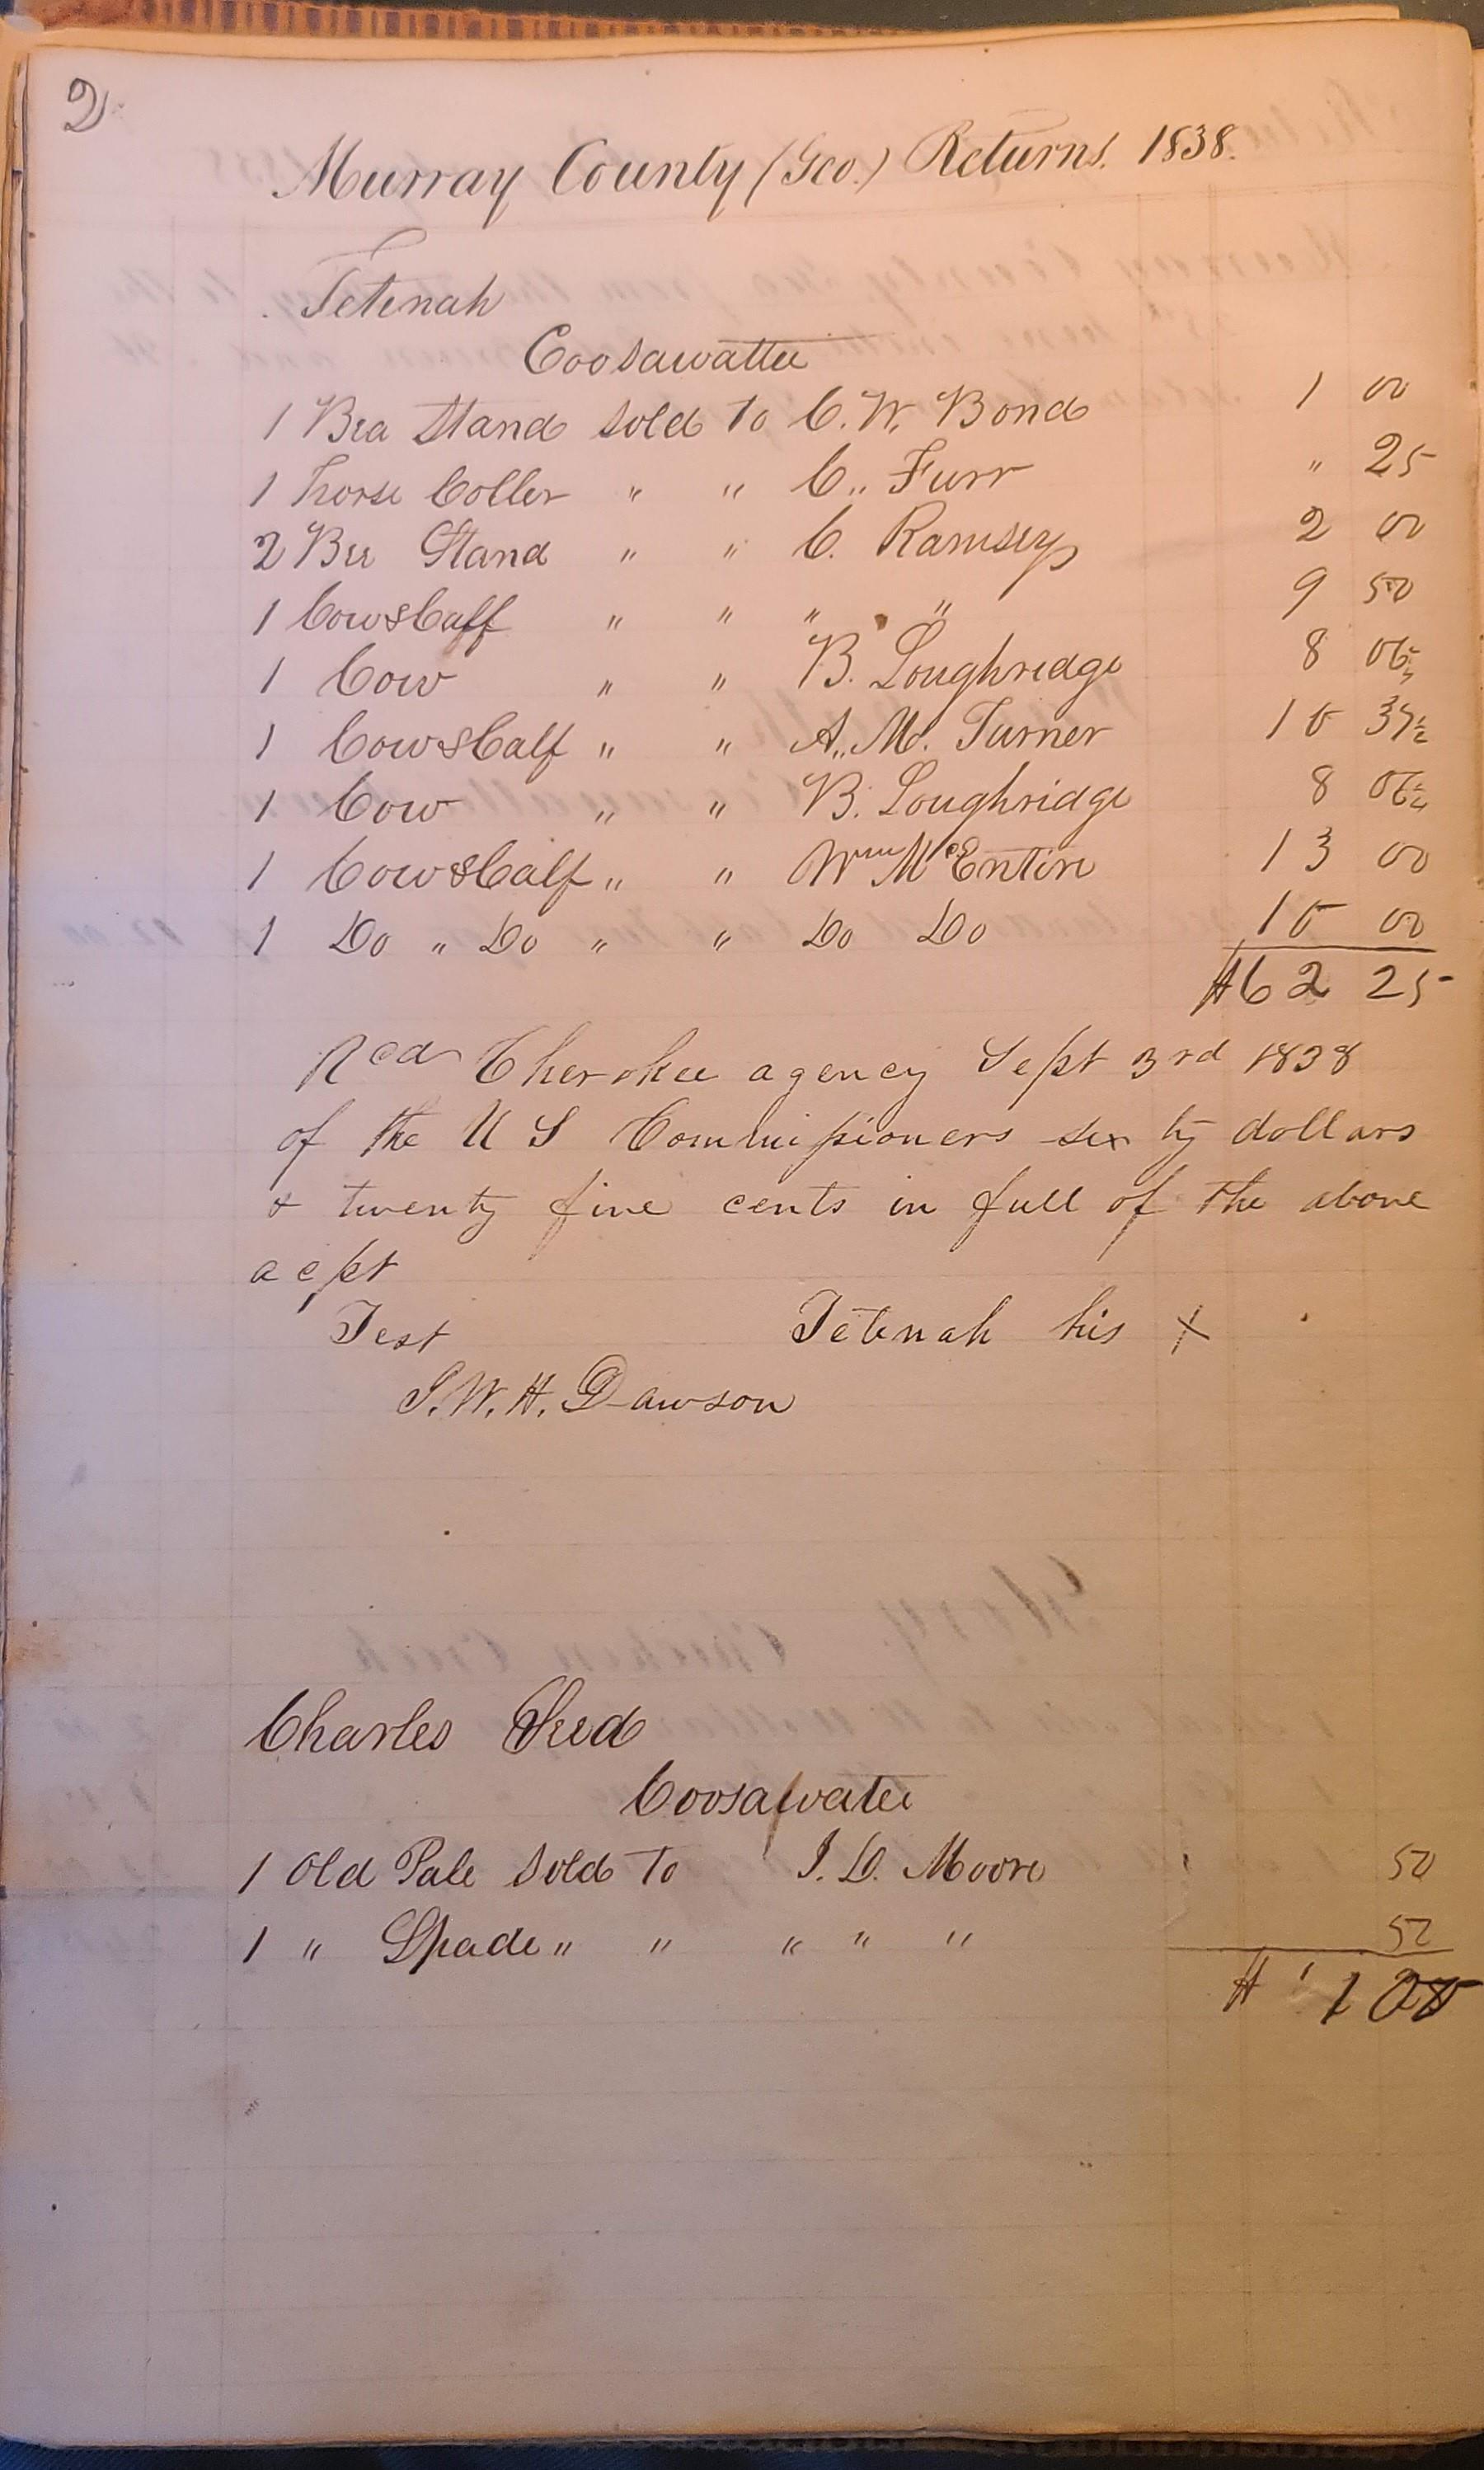 2
Murray County (Geo.) Returns. 1838.
Tetenah
Coosawattee
1 Bea Stand sold to C. W. Bond 1 00
1 horse Coller " " C. Furr " 25
2 Bee Stand " " C. Ramseys 2 00
1 Cow & Caff " " " " 9 50
1 Cow " " B. Loughridge 8 06¼
1 Cow & Calf " " A. M. Turner 10 37½
1 Cow " " B. Loughridge 8 06¼
1 Cow & Calf " " Wm McEntire 13 00
1 Do " Do " " Do Do 10 00
$62 25
Rcd Cherokee agency Sept 3rd 1838
of the U S Commissioners six ty dollars
& twenty five cents in full of the above
acpt
Test Tetenah his X
S. W. H. Dawson
Charles
Coosawatee
1 Old Pale sold to J. D. Moore 50
1 " Spade " " " " " 50
$ 1 00